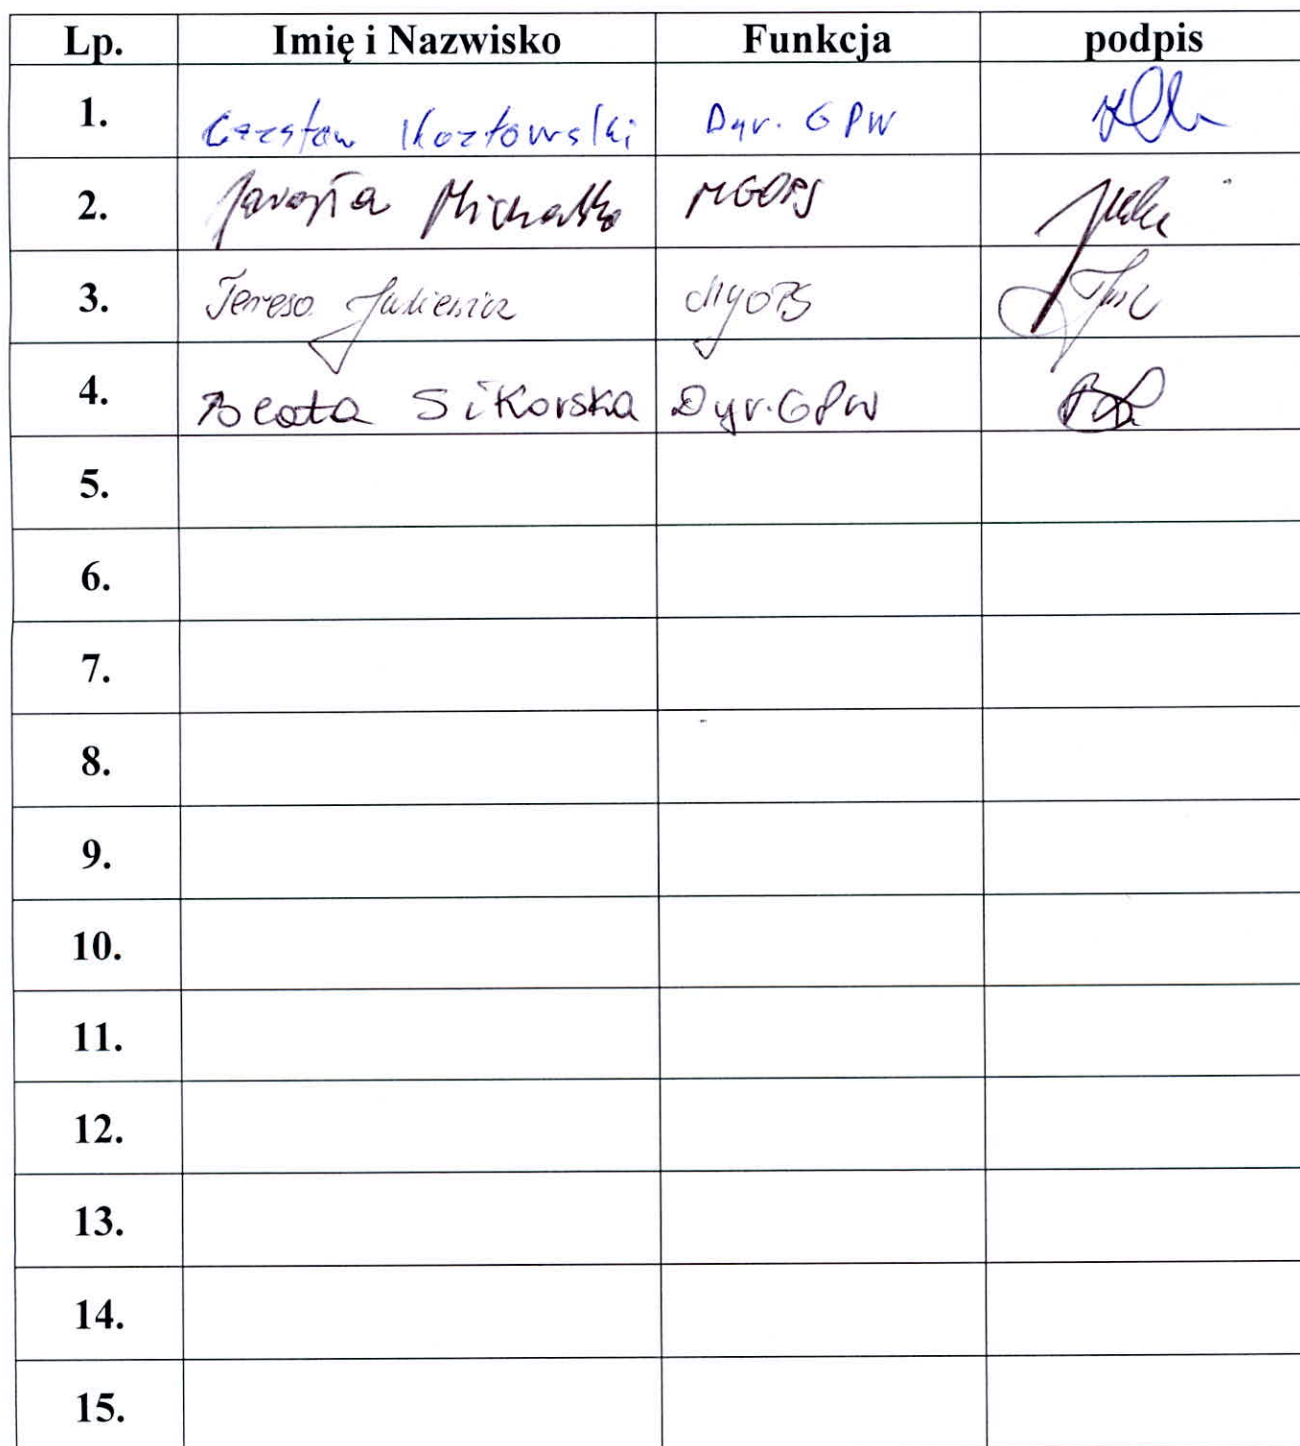 Lp. Imię i Nazwisko Funkcja podpis
1. Czesław Kozłowski Dyr. GPW
2. MGOPS
3. Teresa MGOPS
4. Beata Sikorska Dyr. GPW
5.
6.
7.
8.
9.
10.
11.
12.
13.
14.
15.